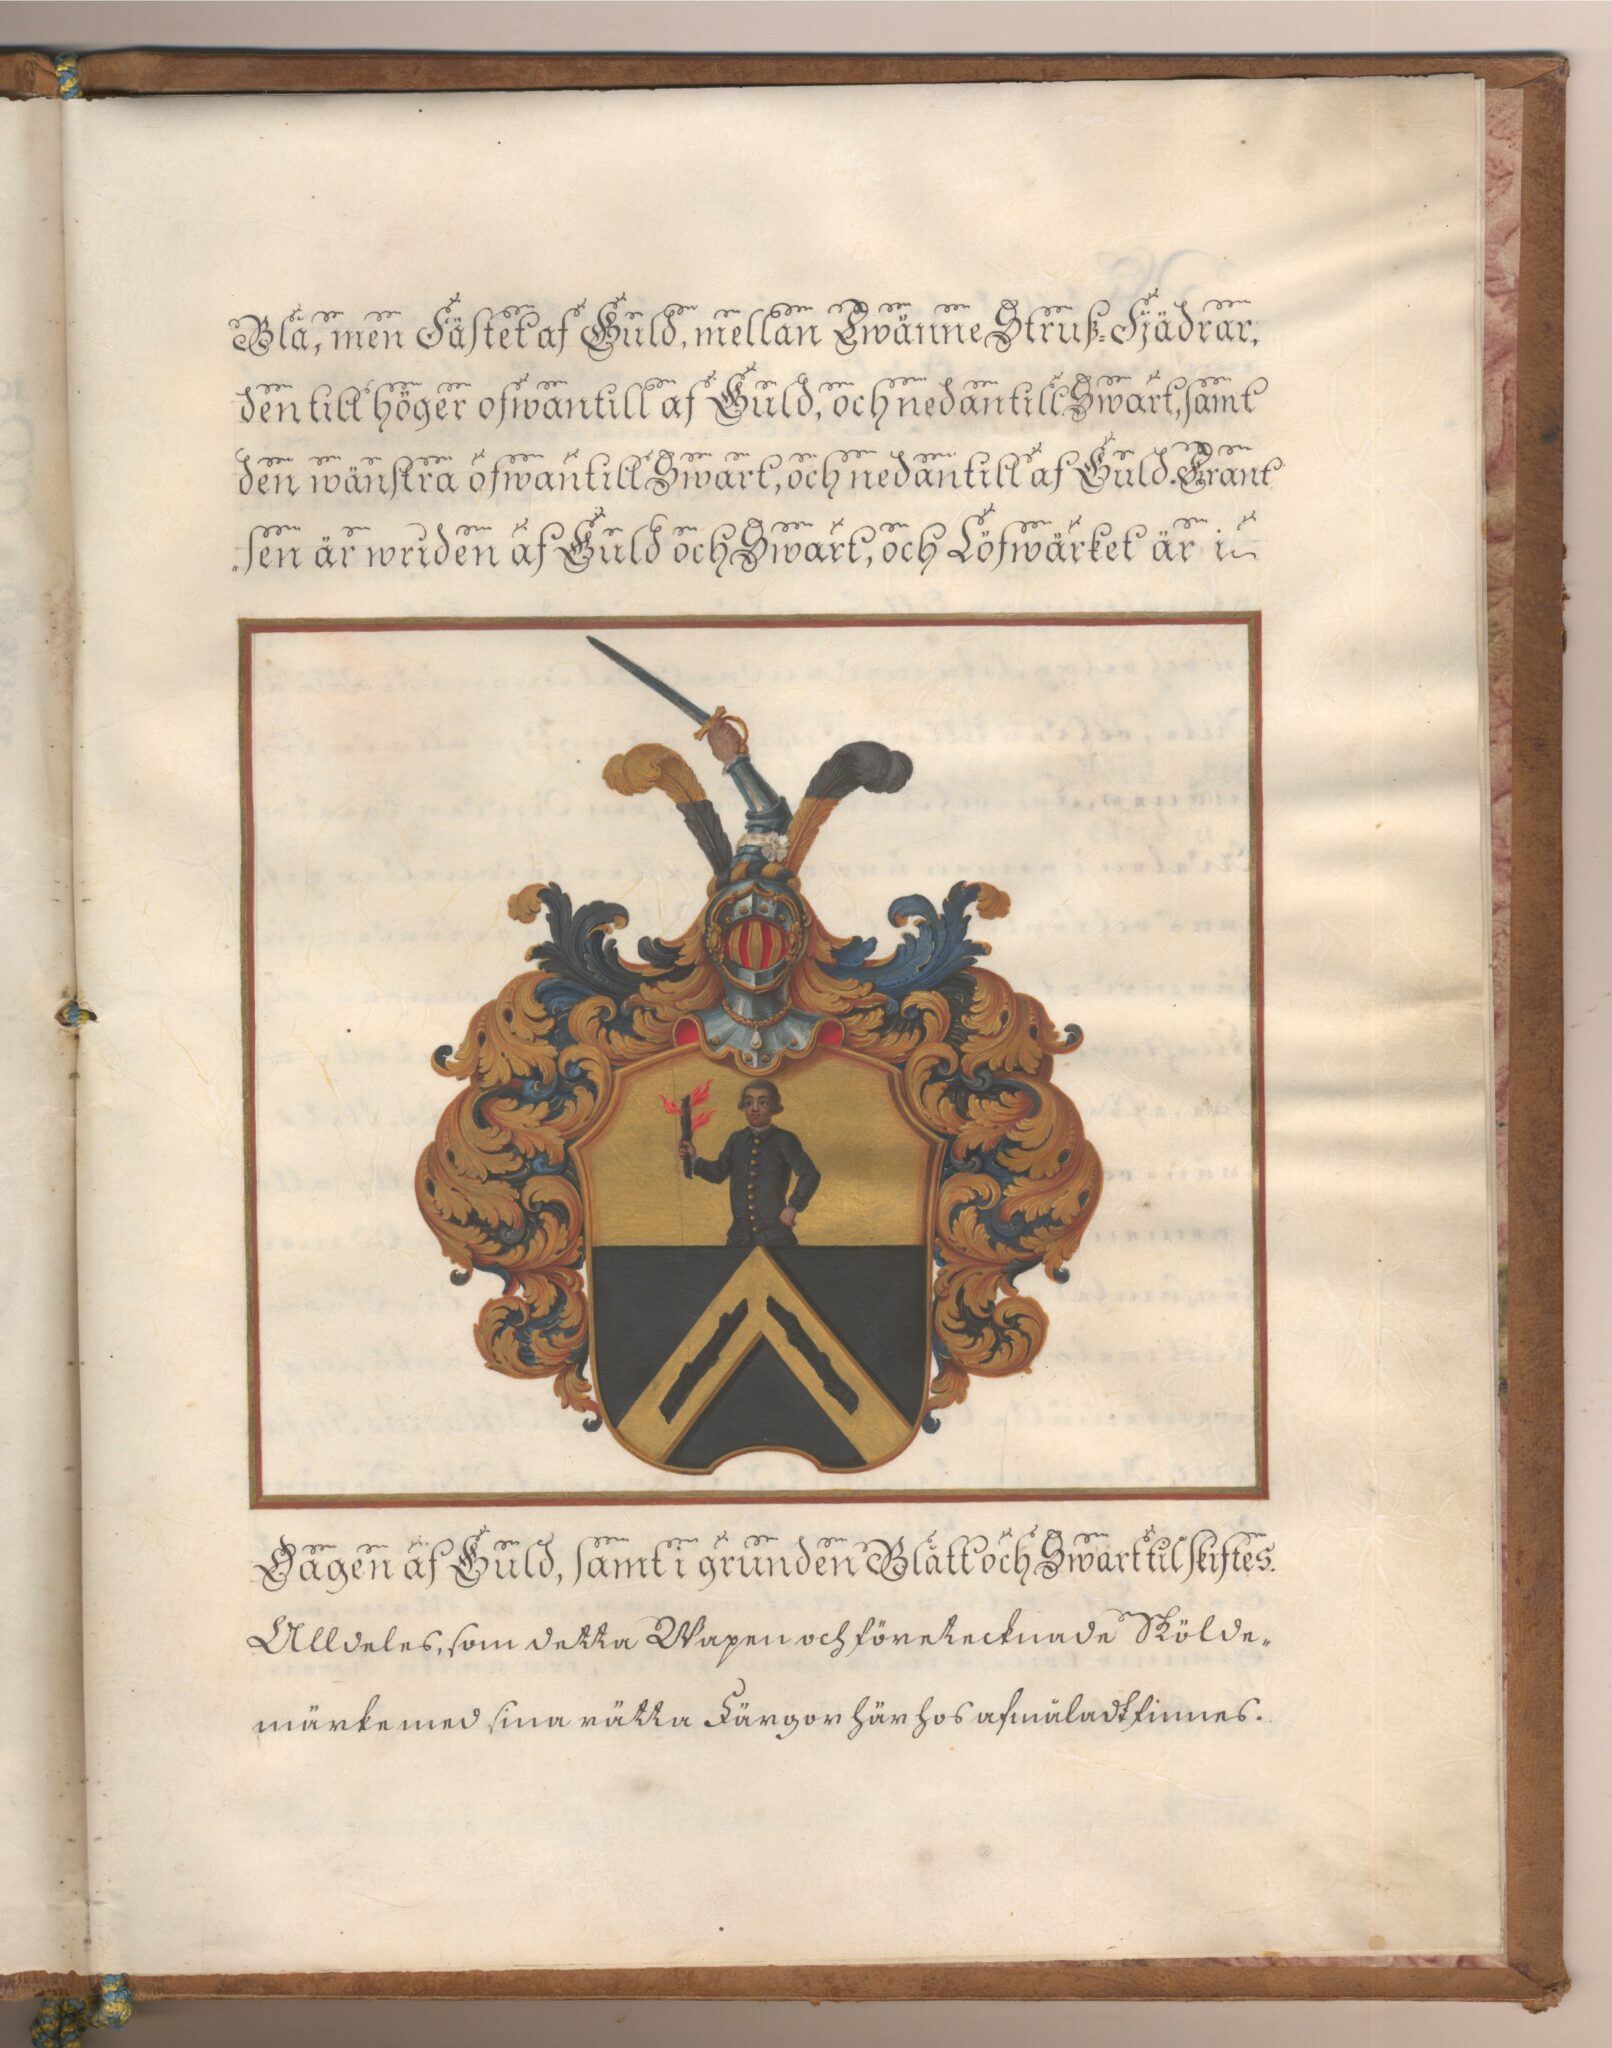 Blå, men Fästet af Guld, mellan Twänne Struß-Fjädrar,
den till höger ofwantill af Guld, och nedantill Swart, samt
den wänstra ofwantill Swart, och nedantill af Guld. Krant
„sen är wriden af Guld och Swart, och Löfwärket är i
Dagen af Guld, samt i grunden Blått och Swart til skiftes.
Alldeles, som detta Wapen och företecknade Skölde„
märke med sina rätta Färgor här hos afmåladt finnes.